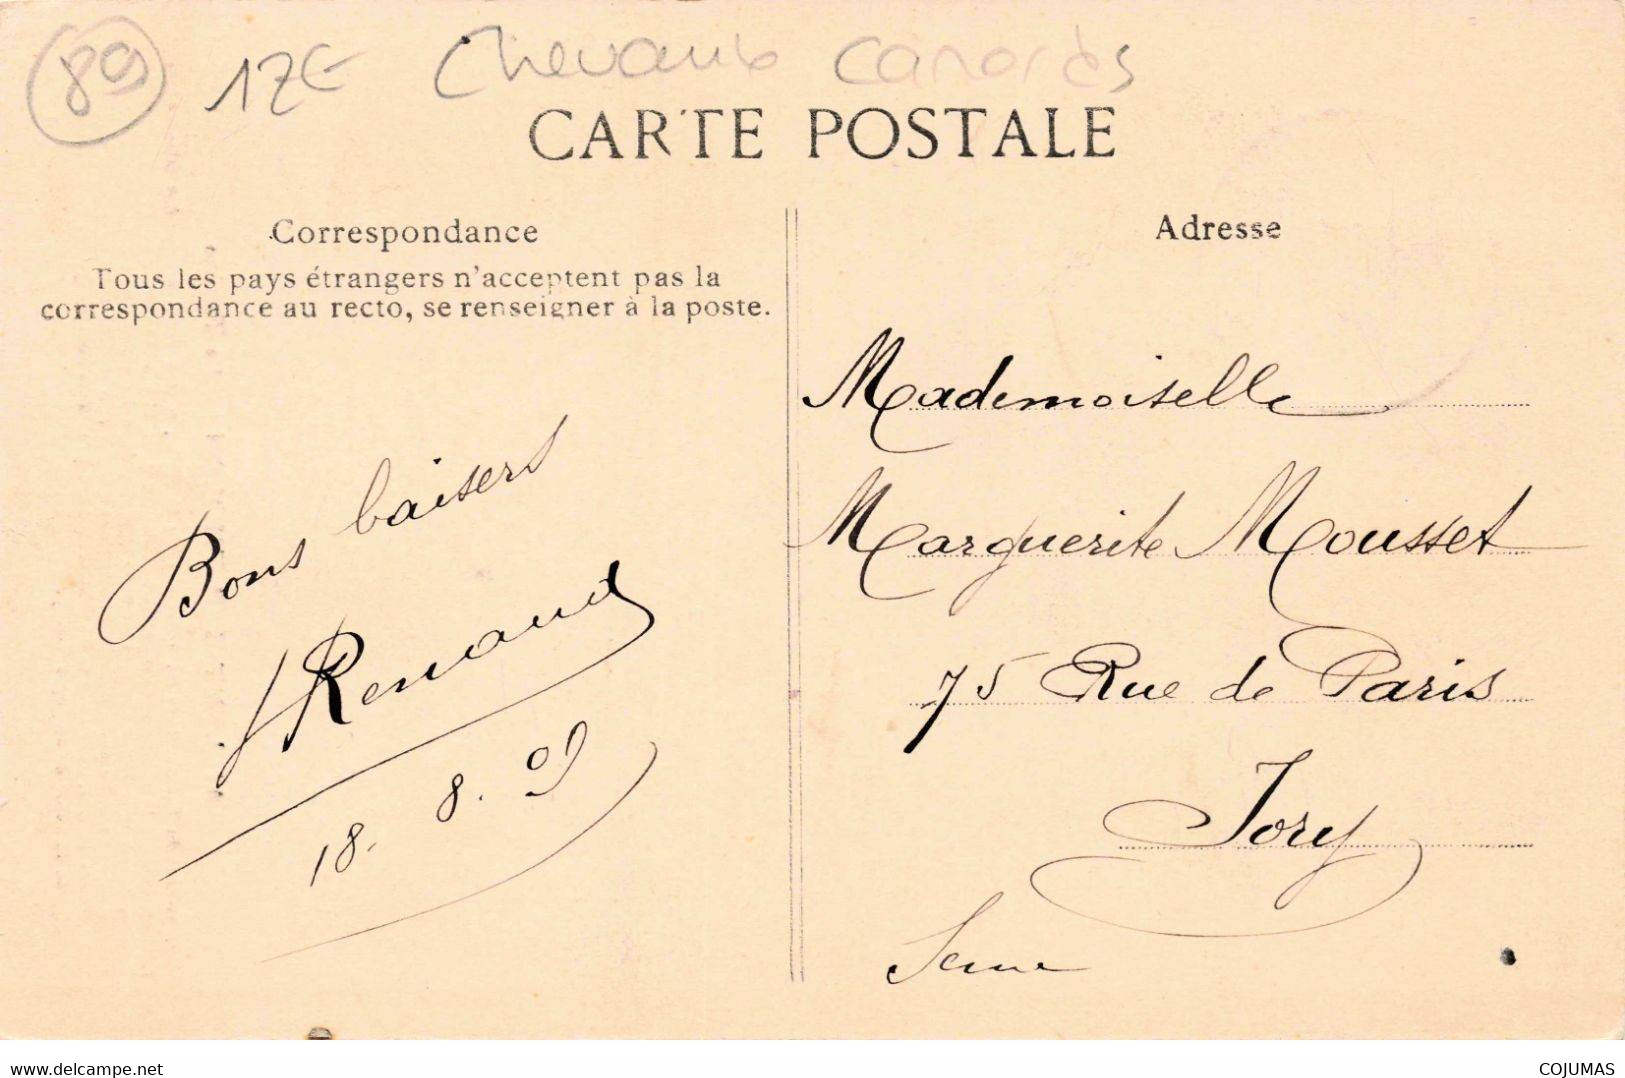 89 17€ Chevaux canards
CARTE POSTALE
Correspondance
Tous les pays étrangers n'acceptent pas la
correspondance au recto, se renseigner à la poste.
Bons baisers
Renaud
18. 8. 09
Adresse
Mademoiselle
Marguerite Mousset
75 Rue de Paris
Ivry
Seine
delcampe.net
COJUMAS